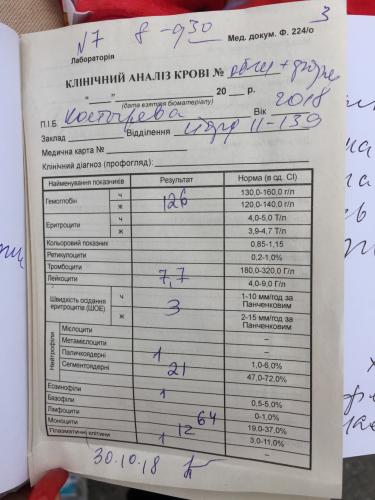 №7 8-930 3
Лабораторія Мед. докум. Ф. 224/о
КЛІНІЧНИЙ АНАЛІЗ КРОВІ №
"____" ____________ 20 ___ р.
(дата взяття біоматеріалу)
П.І.Б. Вік 2018
Заклад Відділення 11-139
Медична карта №
Клінічний діагноз (профогляд):
Найменування показників Результат Норма (в од. СІ)
Гемоглобін ч 126 130,0-160,0 г/л
ж 120,0-140,0 г/л
Еритроцити ч 4,0-5,0 Т/л
ж 3,9-4,7 Т/л
Кольоровий показник 0,85-1,15
Ретикулоцити 0,2-1,0%
Тромбоцити 180,0-320,0 Г/л
Лейкоцити 7,7 4,0-9,0 Г/л
Швидкість осідання еритроцитів (ШОЕ) ч 3 1-10 мм/год за Панченковим
ж 2-15 мм/год за Панченковим
Нейтрофіли Мієлоцити –
Метамієлоцити –
Паличкоядерні 1 1,0-6,0%
Сегментоядерні 21 47,0-72,0%
Еозинофіли 1 0,5-5,0%
Базофіли 0-1,0%
Лімфоцити 64 19,0-37,0%
Моноцити 12 3,0-11,0%
Плазматичні клітини 1 –
30.10.18